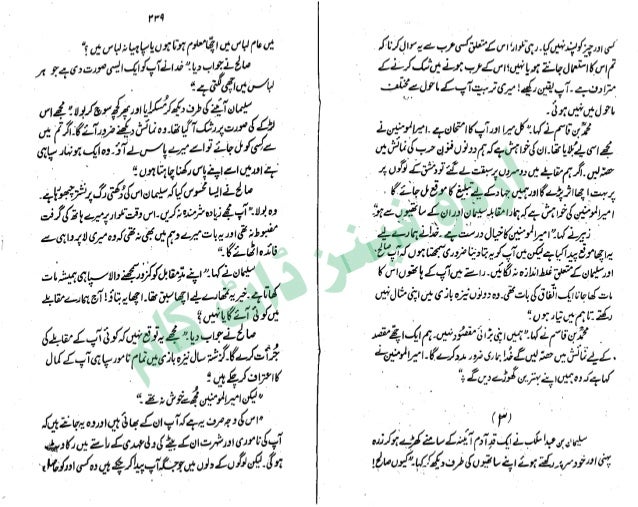 کسی اور چیز کو پسند نہیں کیا۔ رہی تلوار! اس کے متعلق کسی عرب سے یہ سوال کرنا کہ
تم اس کا استعمال جانتے ہو یا نہیں؟ اس کے عرب ہونے میں شک کرنے کے
مترادف ہے۔ آپ یقین رکھیے! میری تربیت آپ کے ماحول سے مختلف
ماحول میں نہیں ہوئی۔
محمد بن قاسم نے کہا۔ "کل میرا اور آپ کا امتحان ہے۔ امیرالمومنین نے
مجھے اسی لیے بلایا تھا۔ ان کی خواہش ہے کہ ہم دونوں فنونِ حرب کی نمائش میں
حصہ لیں۔ اگر ہم مقابلے میں دوسروں پر سبقت لے گئے تو دمشق کے لوگوں پر
بہت اچھا اثر پڑے گا اور ہمیں جہاد کے لیے تبلیغ کا موقع مل جائے گا
امیرالمومنین کی خواہش ہے کہ ہمارا مقابلہ سلیمان اور ان کے ساتھیوں سے ہو"
زبیر نے کہا۔ "امیرالمومنین کا خیال درست ہے۔ خدا نے ہمارے لیے
یہ اچھا موقع پیدا کیا ہے لیکن میں آپ کو یہ بتا دینا ضروری سمجھتا ہوں کہ آپ صالح
اور سلیمان کے متعلق غلط اندازہ نہ لگائیں۔ راستے میں آپ کے ہاتھوں اس کا
مات کھا جانا ایک اتفاق کی بات تھی۔ وہ دونوں نیزہ بازی میں اپنی مثال نہیں
رکھتے۔ تاہم میں تیار ہوں۔"
محمد بن قاسم نے کہا۔ "ہمیں اپنی بڑائی مقصود نہیں۔ ہم ایک اچھے مقصد
کے لیے نمائش میں حصہ لیں گے خدا ہماری ضرور مدد کرے گا۔ امیرالمومنین نے
کہا ہے کہ وہ ہمیں اپنے بہترین گھوڑے دیں گے۔"
(۳)
سلیمان بن عبدالملک نے ایک قدِ آدم آئینہ کے سامنے کھڑے ہو کر زرہ
پہنی اور خود سر پر رکھتے ہوئے اپنے ساتھیوں کی طرف دیکھ کر کہا۔ "کیوں صالح!
۲۳۹
میں عام لباس میں اچھا معلوم ہوتا ہوں یا سپاہیانہ لباس میں؟"
صالح نے جواب دیا۔ "خدا نے آپ کو ایک ایسی صورت دی ہے جو ہر
لباس میں اچھی لگتی ہے۔"
سلیمان آئینے کی طرف دیکھ کر مسکرایا اور پھر کچھ سوچ کر بولا۔ "مجھے اس
لڑکے کی صورت پر رشک آ گیا تھا۔ وہ نمائش دیکھنے ضرور آئے گا۔ اگر تم میں
سے کسی کو مل جائے تو اسے میرے پاس لے آؤ۔ وہ ایک ہونہار سپاہی
ہے اور میں اسے اپنے پاس رکھنا چاہتا ہوں۔"
صالح نے ایسا محسوس کیا کہ سلیمان اس کی دُکھتی رگ پر نشتر چبھو رہا ہے۔
وہ بولا۔ "آپ مجھے زیادہ شرمندہ نہ کریں۔ اس وقت تلوار پر میرے ہاتھ کی گرفت
مضبوط نہ تھی اور یہ بات میرے وہم میں بھی نہ تھی کہ وہ میری لا پرواہی سے
فائدہ اٹھائے گا۔"
سلیمان نے کہا۔ "اپنے مدِ مقابل کو کمزور سمجھنے والا سپاہی ہمیشہ مات
کھاتا ہے۔ خیر یہ تمہارے لیے اچھا سبق تھا۔ اچھا یہ بتاؤ! آج ہمارے مقابلے
میں کوئی آئے گا یا نہیں؟"
صالح نے جواب دیا۔ "مجھے یہ توقع نہیں کہ کوئی آپ کے مقابلے کی
جرأت کرے گا۔ گزشتہ سال نیزہ بازی میں تمام نامور سپاہی آپ کے کمال
کا اعتراف کر چکے ہیں"
"لیکن امیرالمومنین مجھ سے خوش نہ تھے۔"
"اس کی وجہ صرف یہ ہے کہ آپ ان کے بھائی ہیں اور وہ یہ جانتے ہیں کہ
آپ کی ناموری اور شہرت ان کے بیٹے کی ولی عہدی کے راستے میں رکاوٹ
ہوگی۔ لیکن لوگوں کے دلوں میں جو جگہ آپ پیدا کر چکے ہیں وہ کسی اور کو حاصل
اردو فینز ڈاٹ کام